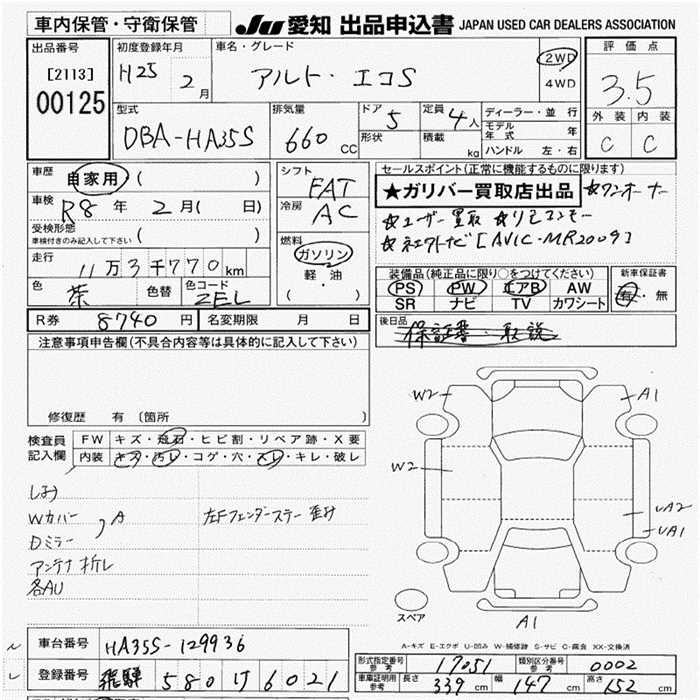 車内保管・守衛保管
JU 愛知 出品申込書 JAPAN USED CAR DEALERS ASSOCIATION
出品番号
[2113]
00125
初度登録年月
H25 2月
車名・グレード
アルト・エコS
2WD
4WD
評価点
3.5
外装 内装
C C
型式
DBA-HA35S
排気量
660 CC
ドア 5
形状
定員 4人
積載 kg
ディーラー・並行
モデル年式 年
ハンドル 左・右
車歴 自家用 ( )
車検 R8年 2月( 日)
受検形態
車検付きのみ記入して下さい ( )
走行 11万3千770km
色 茶 色替 色コード ZEL
シフト FAT
冷房 AC
燃料
ガソリン
軽・油
( ・ )
セールスポイント(正常に機能するものに限ります)
★ガリバー買取店出品 ☆ワンオーナー
☆ユーザー買取 ☆リモコンキー
☆ネエクトナビ[AVIC-MR2009]
装備品(純正品に限り○をつけてください)
PS PW エアB AW
SR ナビ TV カワシート
新車保証書
有・無
R券 8740円 名変期限 月 日
後日品
保証書・取説
注意事項申告欄(不具合内容等は具体的に記入して下さい)
修復歴 有 〔箇所 〕
検査員記入欄
FW キズ・飛石・ヒビ割・リペア跡・X要
内装 キズ・汚レ・コゲ・穴・スレ・キレ・破レ
しみ
Wカバー
Dミラー
A
左Fフェンダーステー 歪み
アンテナ折レ
各AU
W2
A1
W2
UA2
UA1
スペア
A1
A-キズ E-エクボ U-凹み W-補修跡 S-サビ C-腐食 XX-交換済
車台番号 HA35S-129936
登録番号 飛騨 580 け 6021
形式指定番号 参考 17051 類別区分番号 参考 0002
車庫証明用 参考 長さ 339cm 幅 147cm 高さ 152cm